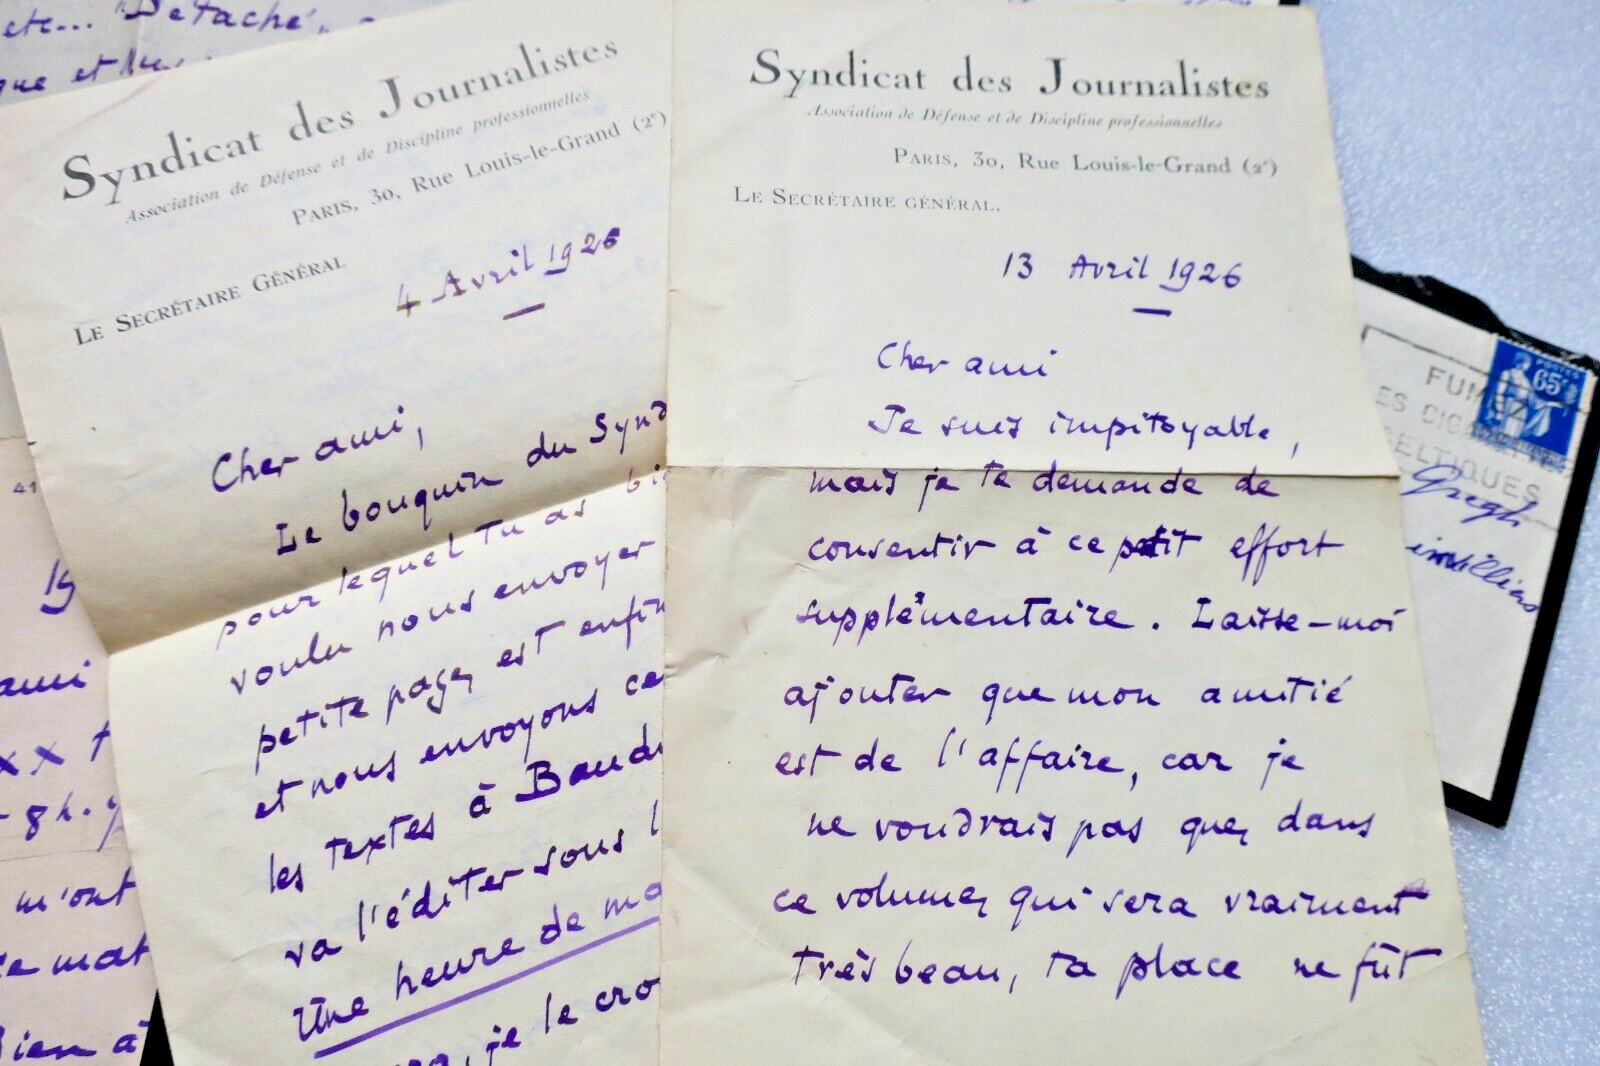 etc... "Détaché",
que et
Syndicat des Journalistes
Association de Défense et de Discipline professionnelles
PARIS, 30, Rue Louis-le-Grand (2e)
LE SECRÉTAIRE GÉNÉRAL
4 Avril 1926
Cher ami,
Le bouquin du Synd
pour lequel tu as bi
voulu nous envoyer
petite page, est enfin
et nous envoyons ce
les textes à Baud
va l'éditer sous l
Une heure de ma
je le cro
Syndicat des Journalistes
Association de Défense et de Discipline professionnelles
PARIS, 30, Rue Louis-le-Grand (2e)
LE SECRÉTAIRE GÉNÉRAL.
13 Avril 1926
Cher ami
Je suis impitoyable,
mais je te demande de
consentir à ce petit effort
supplémentaire. Laisse-moi
ajouter que mon amitié
est de l'affaire, car je
ne voudrais pas que, dans
ce volume, qui sera vraiment
très beau, ta place ne fût
41
19
ami
xx t
8h.
m'ont
ce mat
Bien à
POSTES
65c
FUMEZ
ES CIGARETTES
CELTIQUES
Gregh